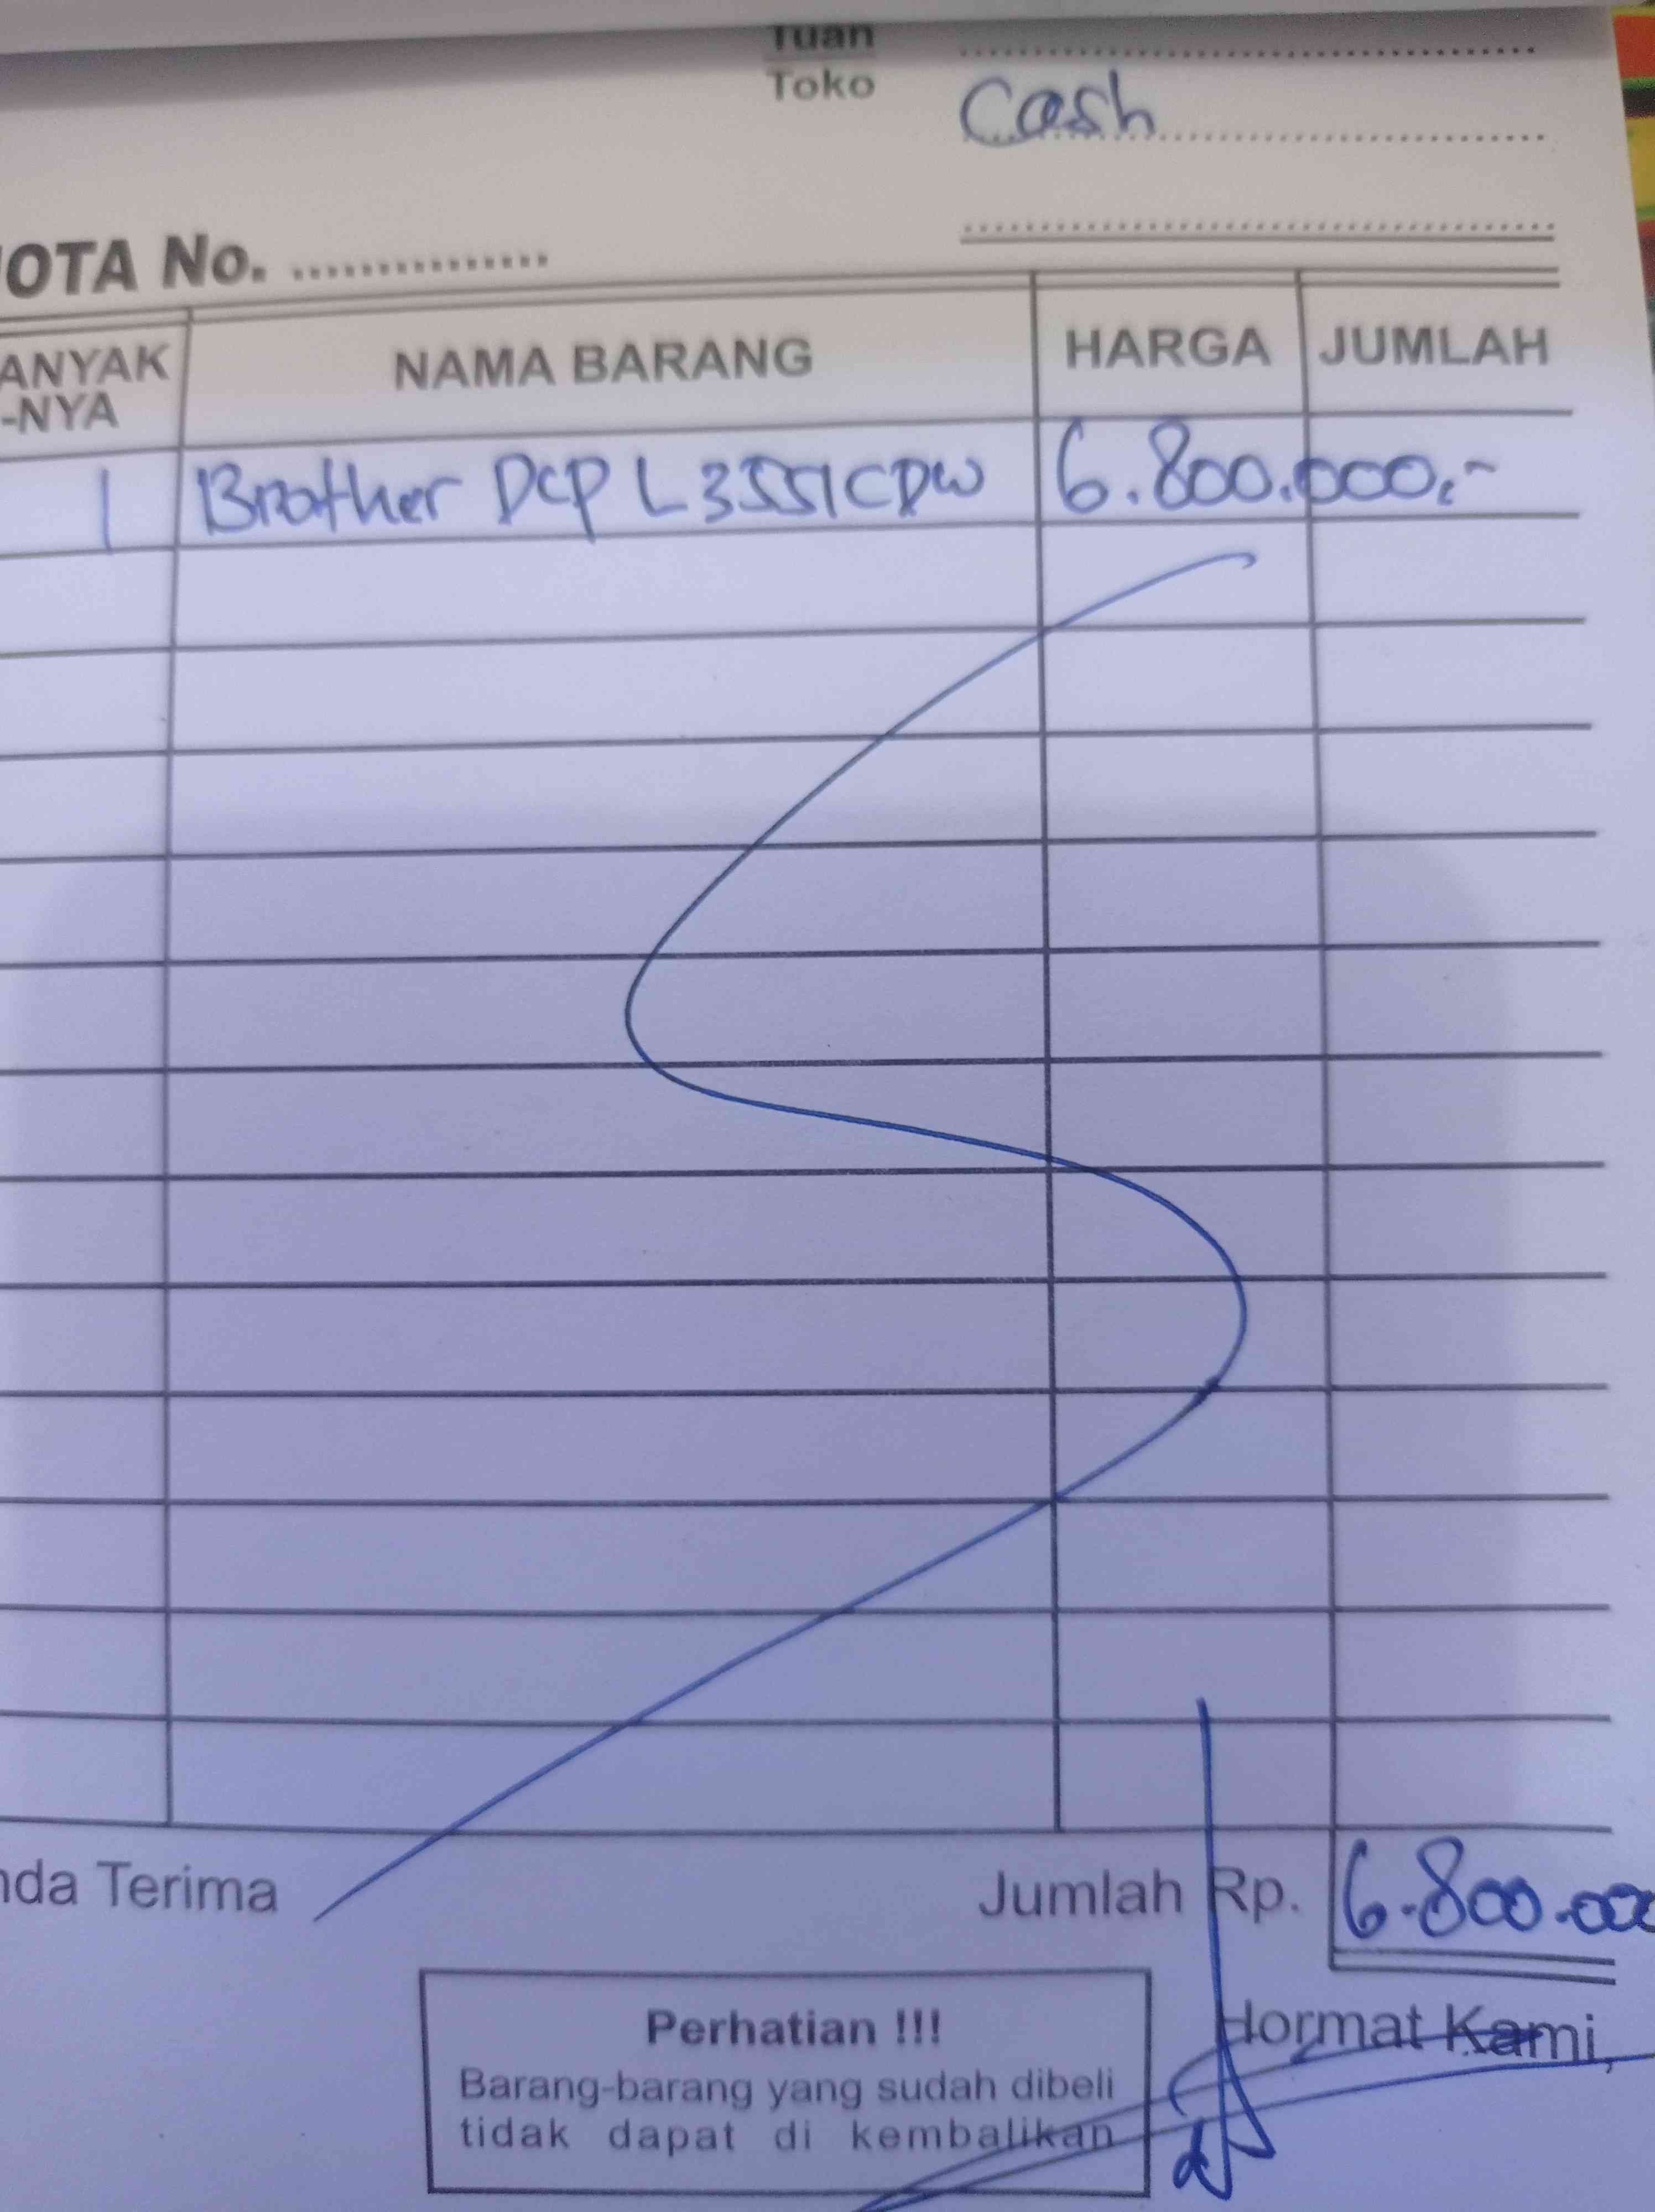 Tuan
Toko Cash
OTA No. ...............
ANYAK
-NYA NAMA BARANG HARGA JUMLAH
1 Brother DCP L3551CDW 6.800.000,-
nda Terima Jumlah Rp. 6.800.000
Perhatian !!!
Barang-barang yang sudah dibeli
tidak dapat di kembalikan
Hormat Kami,